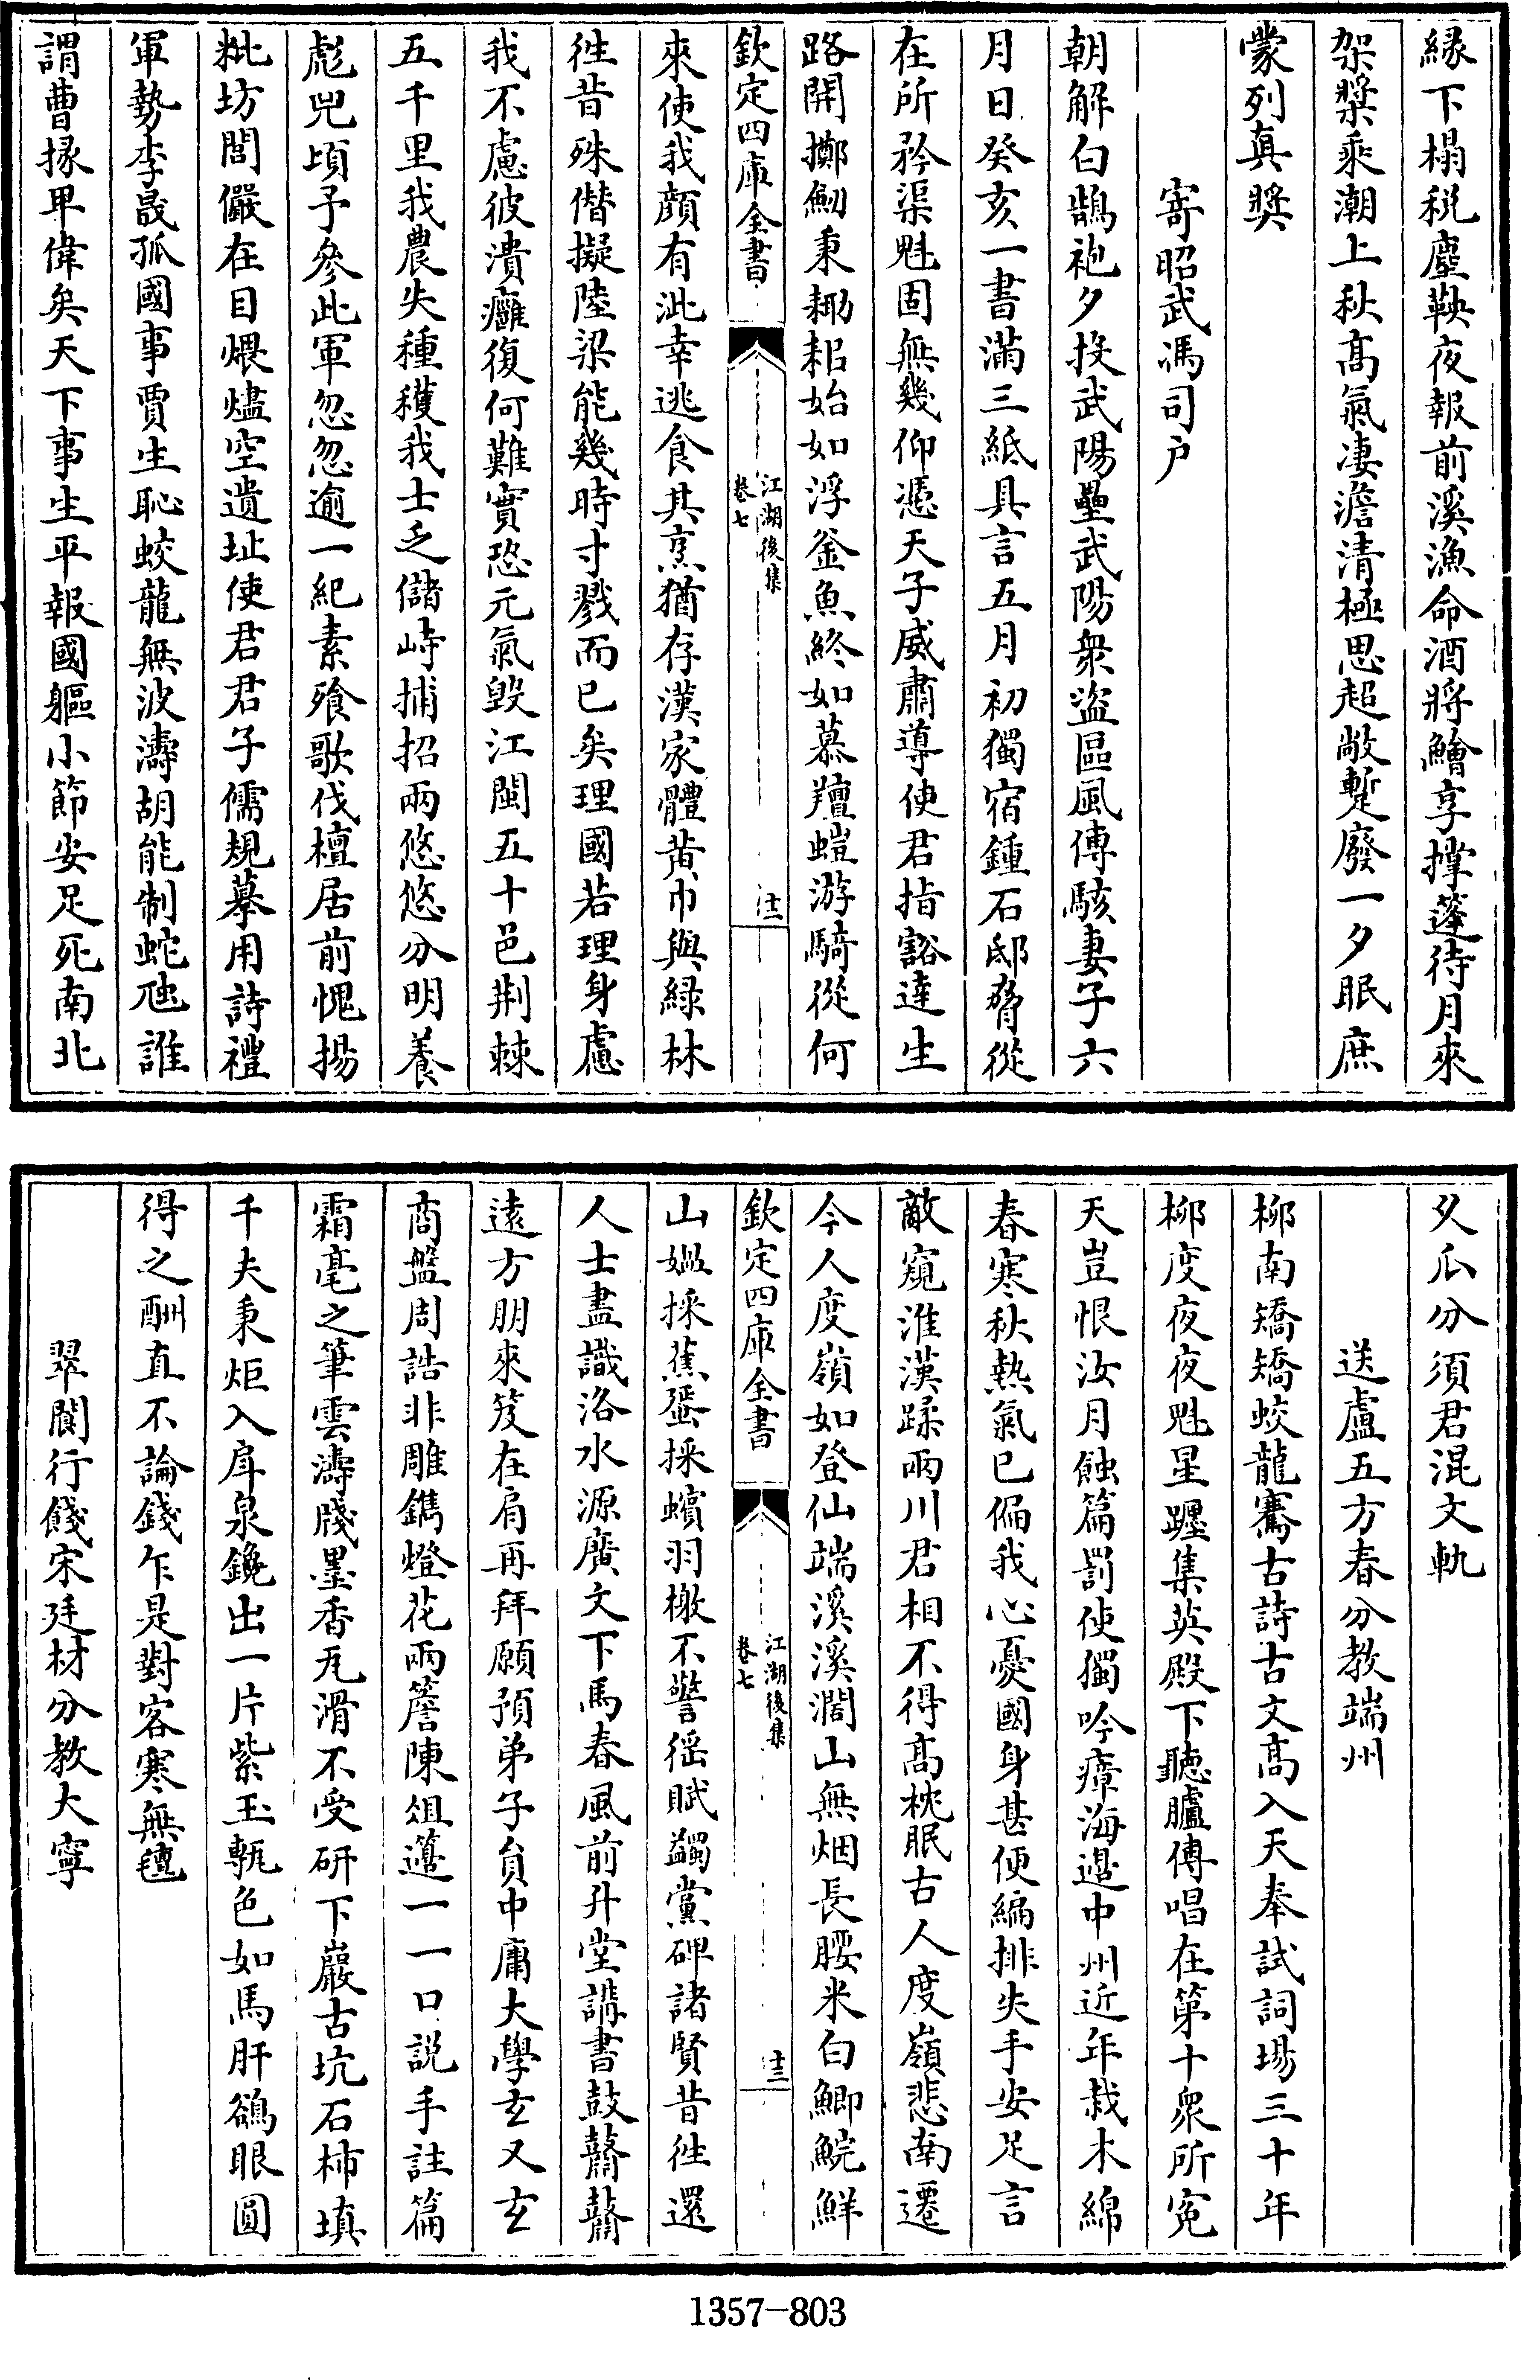 縁下榻税塵鞅夜報前溪漁命酒將鱠享撑蓬待月來
架槳乘潮上秋髙氣凄澹清極思超敞蹔廢一夕眠庶
蒙列真奬
寄昭武馮司户
朝解白鵲袍夕投武陽壘武陽衆盜區風傳駭妻子六
月日癸亥一書滿三紙具言五月初獨宿鍾石邸脅從
在所矜渠魁固無幾仰憑天子威肅導使君指豁達生
路開擲劒秉耡耜始如浮釜魚終如慕羶螘游騎從何
欽定四庫全書
江湖後集
卷七
十二
來使我顔有泚幸逃食其烹猶存漢家體黄巾與緑林
徃昔殊僭擬陸梁能幾時寸戮而已矣理國若理身慮
我不慮彼潰癰復何難實恐元氣毁江閩五十邑荆棘
五千里我農失種穫我士乏儲峙捕招兩悠悠分明養
彪兕頃予參此軍忽忽逾一紀素飱歌伐檀居前愧揚
粃坊閭儼在目煨燼空遺址使君君子儒規摹用詩禮
軍勢李晟孤國事賈生恥蛟龍無波濤胡能制蛇虺誰
謂曹掾卑偉矣天下事生平報國軀小節安足死南北
久瓜分須君混文軌
送盧五方春分教端州
柳南矯矯蛟龍騫古詩古文髙入天奉試詞場三十年
柳度夜夜魁星躔集英殿下聽臚傳唱在第十衆所寃
天豈恨汝月蝕篇罰使獨吟瘴海邉中州近年栽木綿
春寒秋熱氣已偏我心憂國身甚便編排失手安足言
敵窺淮漢蹂兩川君相不得髙枕眠古人度嶺悲南遷
今人度嶺如登仙端溪溪濶山無烟長腰米白鯽鯇鮮
欽定四庫全書
江湖後集
卷七
十三
山媪採蕉蜑採蠙羽檄不警徭賦蠲黨碑諸賢昔徃還
人士盡識洛水源廣文下馬春風前升堂講書鼓鼘鼘
遠方朋來笈在肩再拜願預弟子員中庸大學玄又玄
商盤周誥非雕鐫燈花兩簷陳俎籩一一口説手註篇
霜毫之筆雲濤牋墨香旡滑不受研下巖古坑石柿填
千夫秉炬入戽泉鑱出一片紫玉甎色如馬肝鵒眼圓
得之酬直不論錢乍是對客寒無氊
翠閬行餞宋廷材分教大寧
1357-803